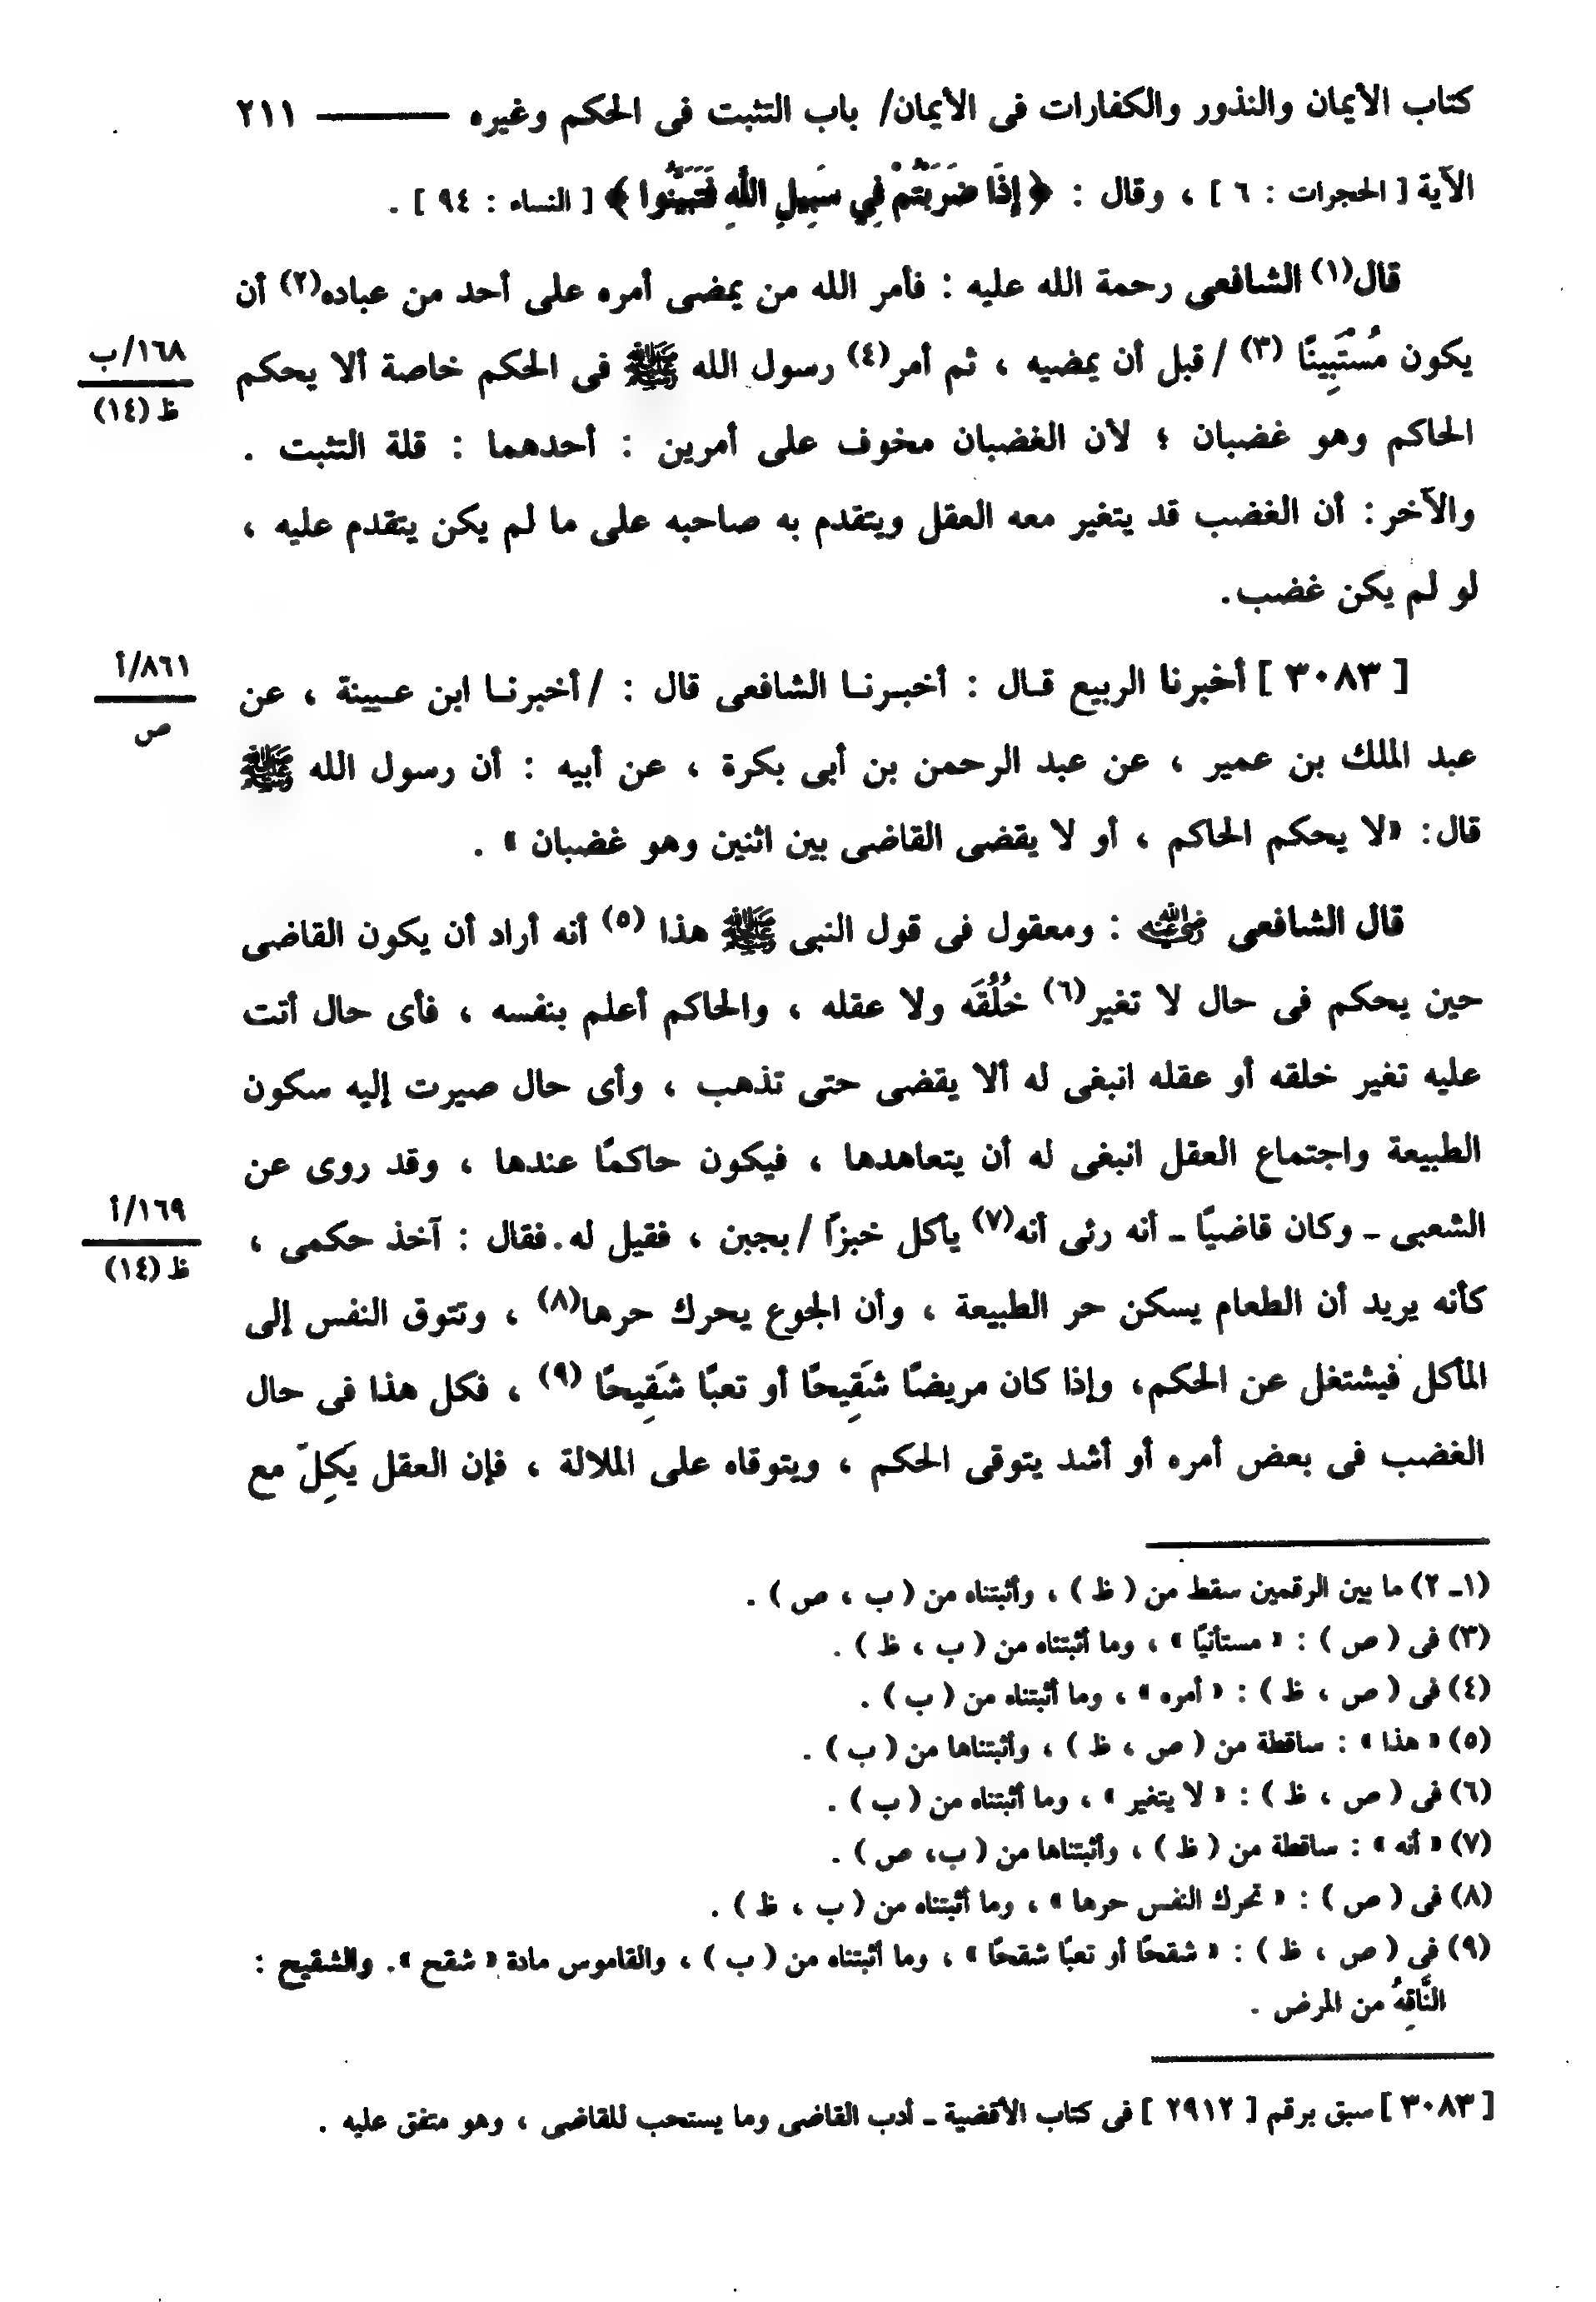 كتاب الأيمان والنذور والكفارات فى الأيمان/ باب التثبت فى الحكم وغيره ——— ٢١١
الآية [ الحجرات : ٦ ] ، وقال : ﴿ إِذَا ضَرَبْتُمْ فِي سَبِيلِ اللَّهِ فَتَبَيَّنُوا ﴾ [ النساء : ٩٤ ] .
قال(١) الشافعى رحمة الله عليه : فأمر الله من يمضى أمره على أحد من عباده(٢) أن
يكون مُسْتَبِينًا (٣) / قبل أن يمضيه ، ثم أمر(٤) رسول الله ﷺ فى الحكم خاصة ألا يحكم
١٦٨/ب
ظ (١٤)
الحاكم وهو غضبان ؛ لأن الغضبان مخوف على أمرين : أحدهما : قلة التثبت .
والآخر : أن الغضب قد يتغير معه العقل ويتقدم به صاحبه على ما لم يكن يتقدم عليه ،
لو لم يكن غضب.
[ ٣٠٨٣ ] أخبرنا الربيع قال : أخبرنا الشافعى قال : / أخبرنا ابن عيينة ، عن
٨٦١/أ
ص
عبد الملك بن عمير ، عن عبد الرحمن بن أبى بكرة ، عن أبيه : أن رسول الله ﷺ
قال: «لا يحكم الحاكم ، أو لا يقضى القاضى بين اثنين وهو غضبان » .
قال الشافعى رضي الله عنه : ومعقول فى قول النبى ﷺ هذا (٥) أنه أراد أن يكون القاضى
حين يحكم فى حال لا تغير(٦) خُلُقَه ولا عقله ، والحاكم أعلم بنفسه ، فأى حال أتت
عليه تغير خلقه أو عقله انبغى له ألا يقضى حتى تذهب ، وأى حال صيرت إليه سكون
الطبيعة واجتماع العقل انبغى له أن يتعاهدها ، فيكون حاكمًا عندها ، وقد روى عن
الشعبى ـ وكان قاضيًا ـ أنه رئى أنه(٧) يأكل خبزًا / بجبن ، فقيل له. فقال : آخذ حكمى ،
١٦٩/أ
ظ (١٤)
كأنه يريد أن الطعام يسكن حر الطبيعة ، وأن الجوع يحرك حرها(٨) ، وتتوق النفس إلى
المأكل فيشتغل عن الحكم، وإذا كان مريضًا شَقِيحًا أو تعبًا شَقِيحًا (٩) ، فكل هذا فى حال
الغضب فى بعض أمره أو أشد يتوقى الحكم ، ويتوقاه على الملالة ، فإن العقل يَكِلّ مع
(١ـ ٢) ما بين الرقمين سقط من ( ظ ) ، وأثبتناه من ( ب ، ص ) .
(٣) فى ( ص ) : « مستأنيًا » ، وما أثبتناه من ( ب ، ظ ) .
(٤) فى ( ص ، ظ ) : « أمره » ، وما أثبتناه من ( ب ) .
(٥) « هذا » : ساقطة من ( ص ، ظ ) ، وأثبتناها من ( ب ) .
(٦) فى ( ص ، ظ ) : « لا يتغير » ، وما أثبتناه من ( ب ) .
(٧) « أنه » : ساقطة من ( ظ ) ، وأثبتناها من ( ب، ص ) .
(٨) فى ( ص ) : « تحرك النفس حرها » ، وما أثبتناه من ( ب ، ظ ) .
(٩) فى ( ص ، ظ ) : « شقحًا أو تعبًا شقحًا » ، وما أثبتناه من ( ب ) ، والقاموس مادة « شقح ». والشقيح :
النَّاقِهُ من المرض .
[ ٣٠٨٣ ] سبق برقم [ ٢٩١٢ ] فى كتاب الأقضية ـ أدب القاضى وما يستحب للقاضى ، وهو متفق عليه .